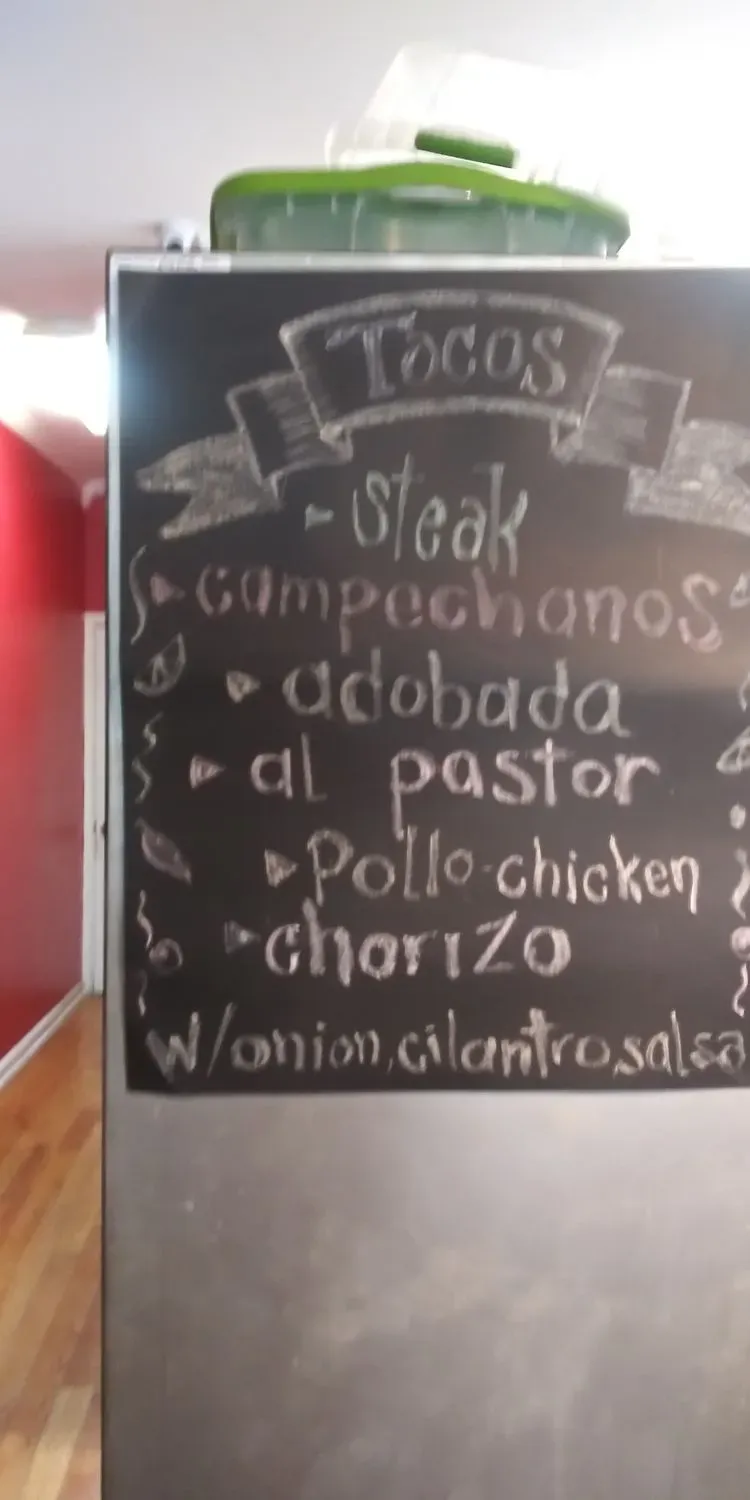 Tacos
steak
campechanos
adobada
al pastor
Pollo-chicken
chorizo
w/onion,cilantro,salsa